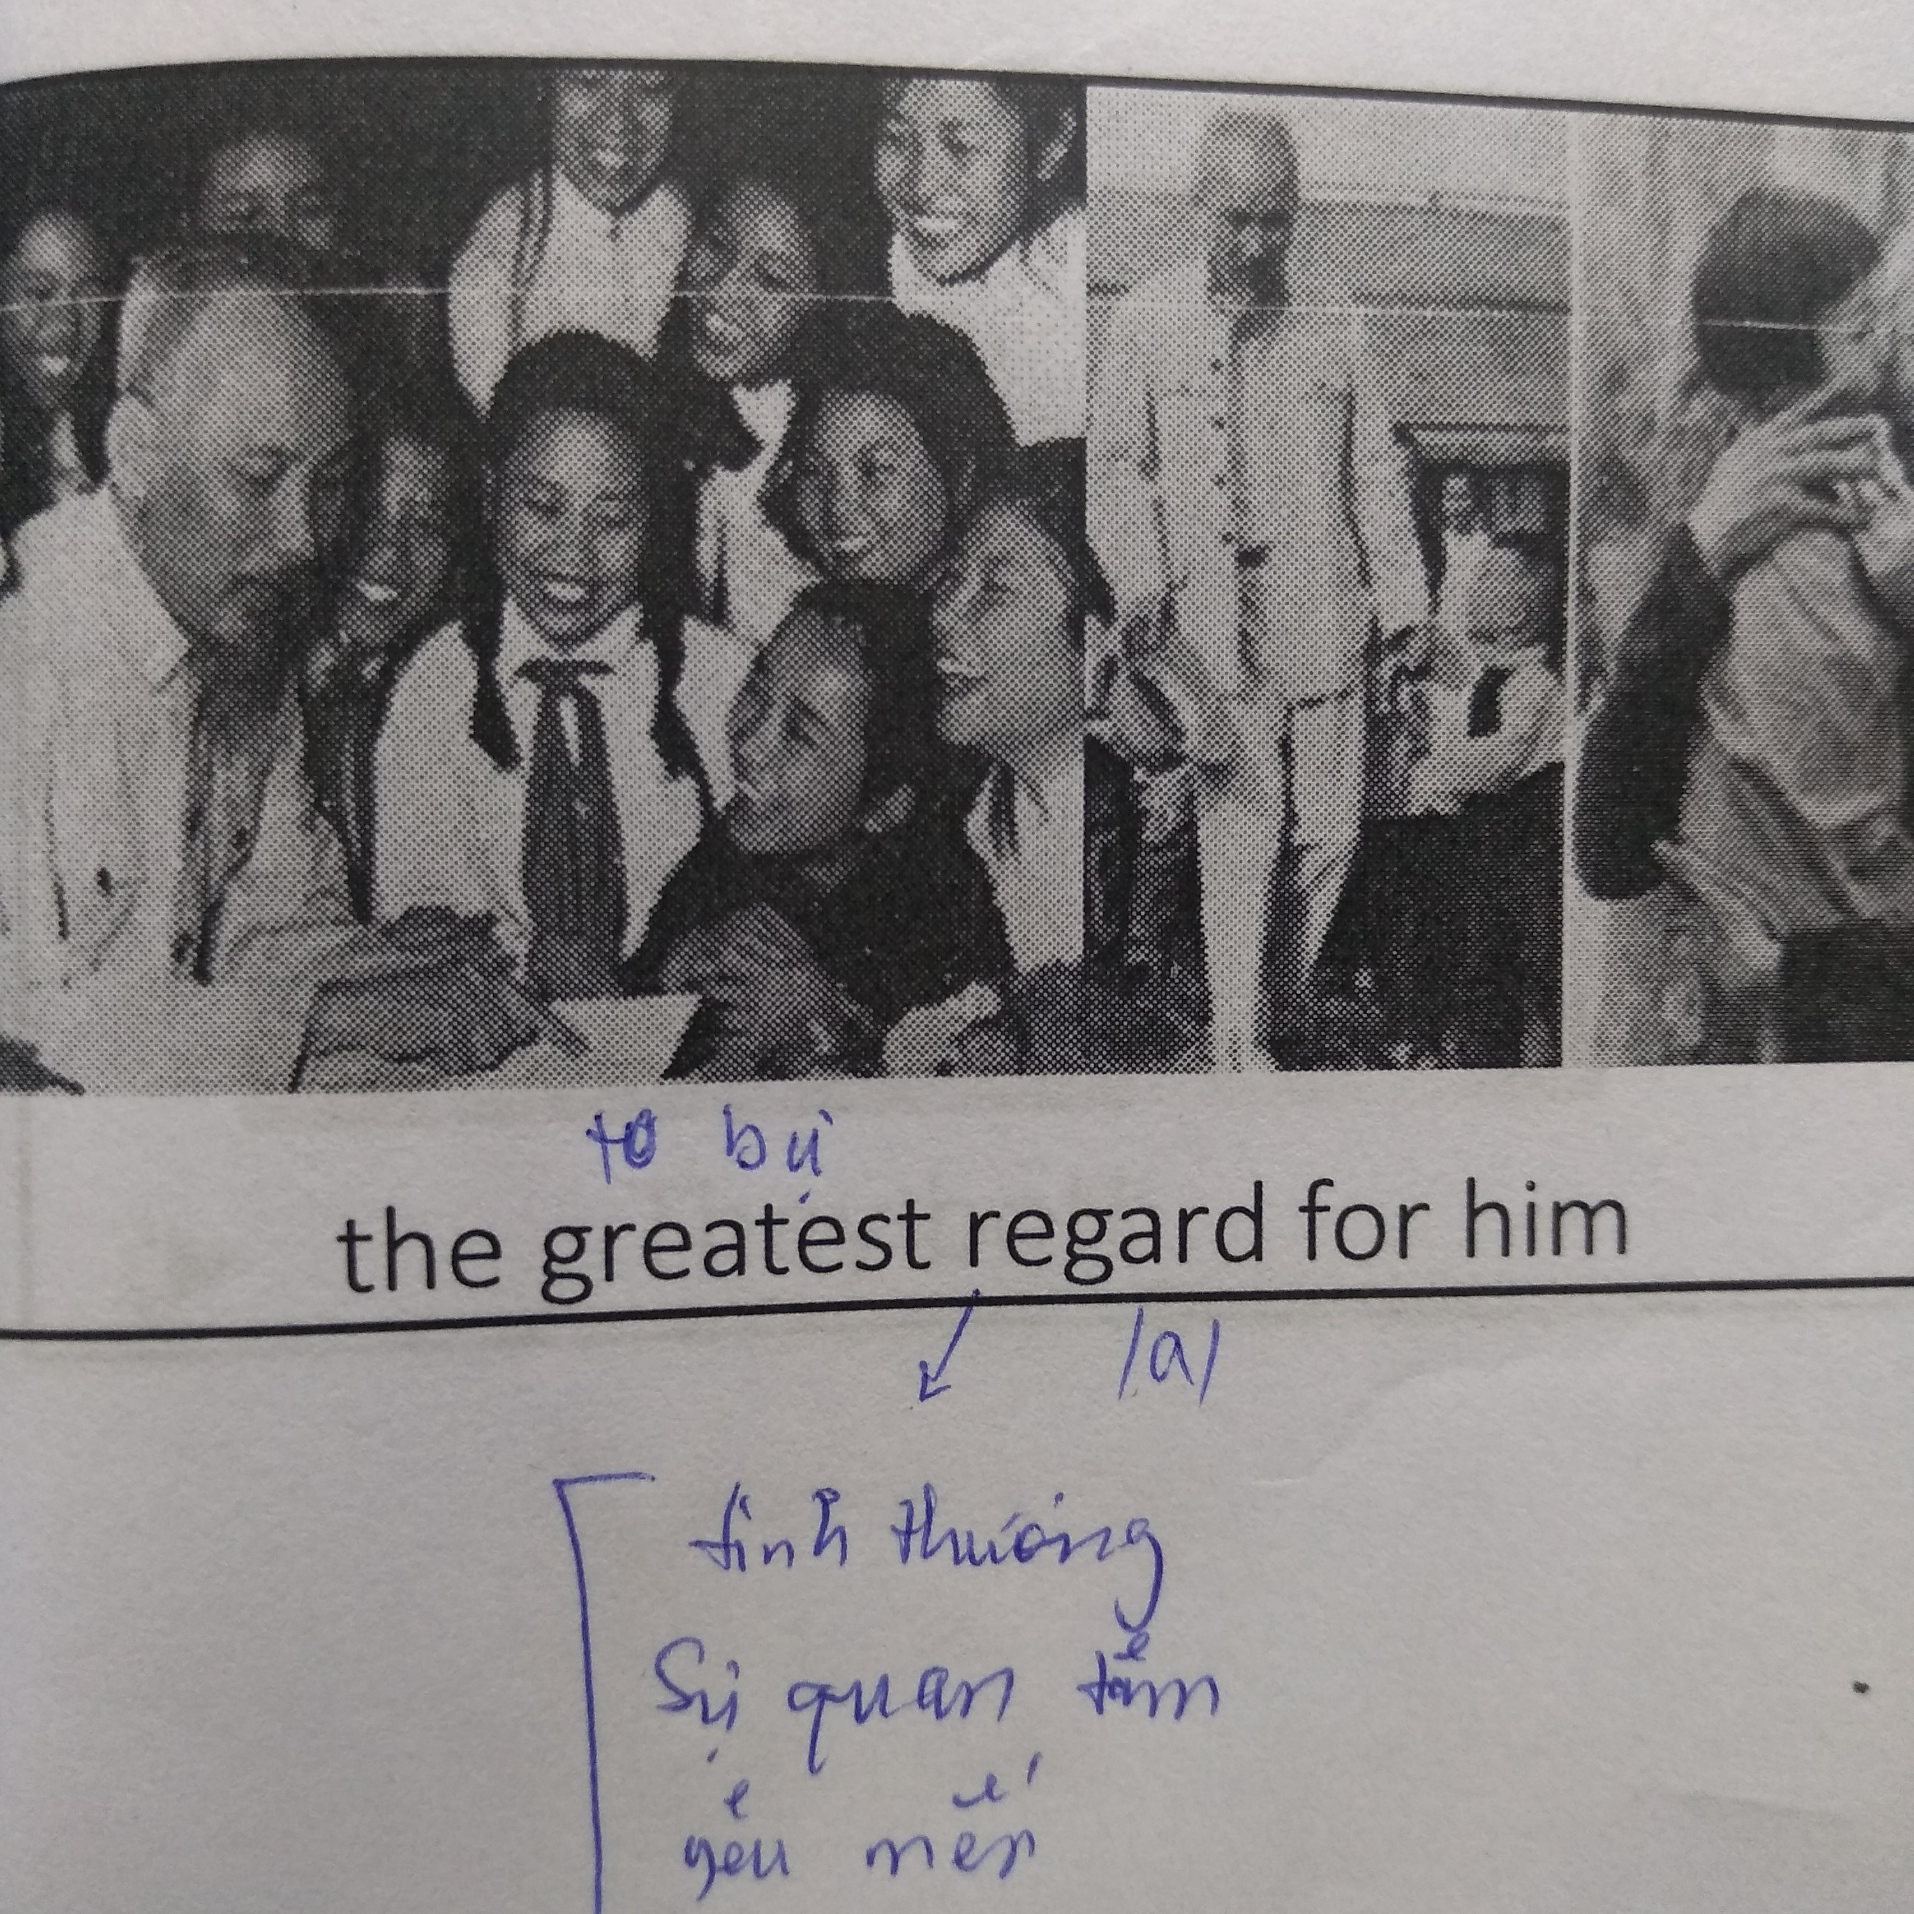 to bự
the greatest regard for him
/a/
tình thương
Sự quan tâm
yêu mến